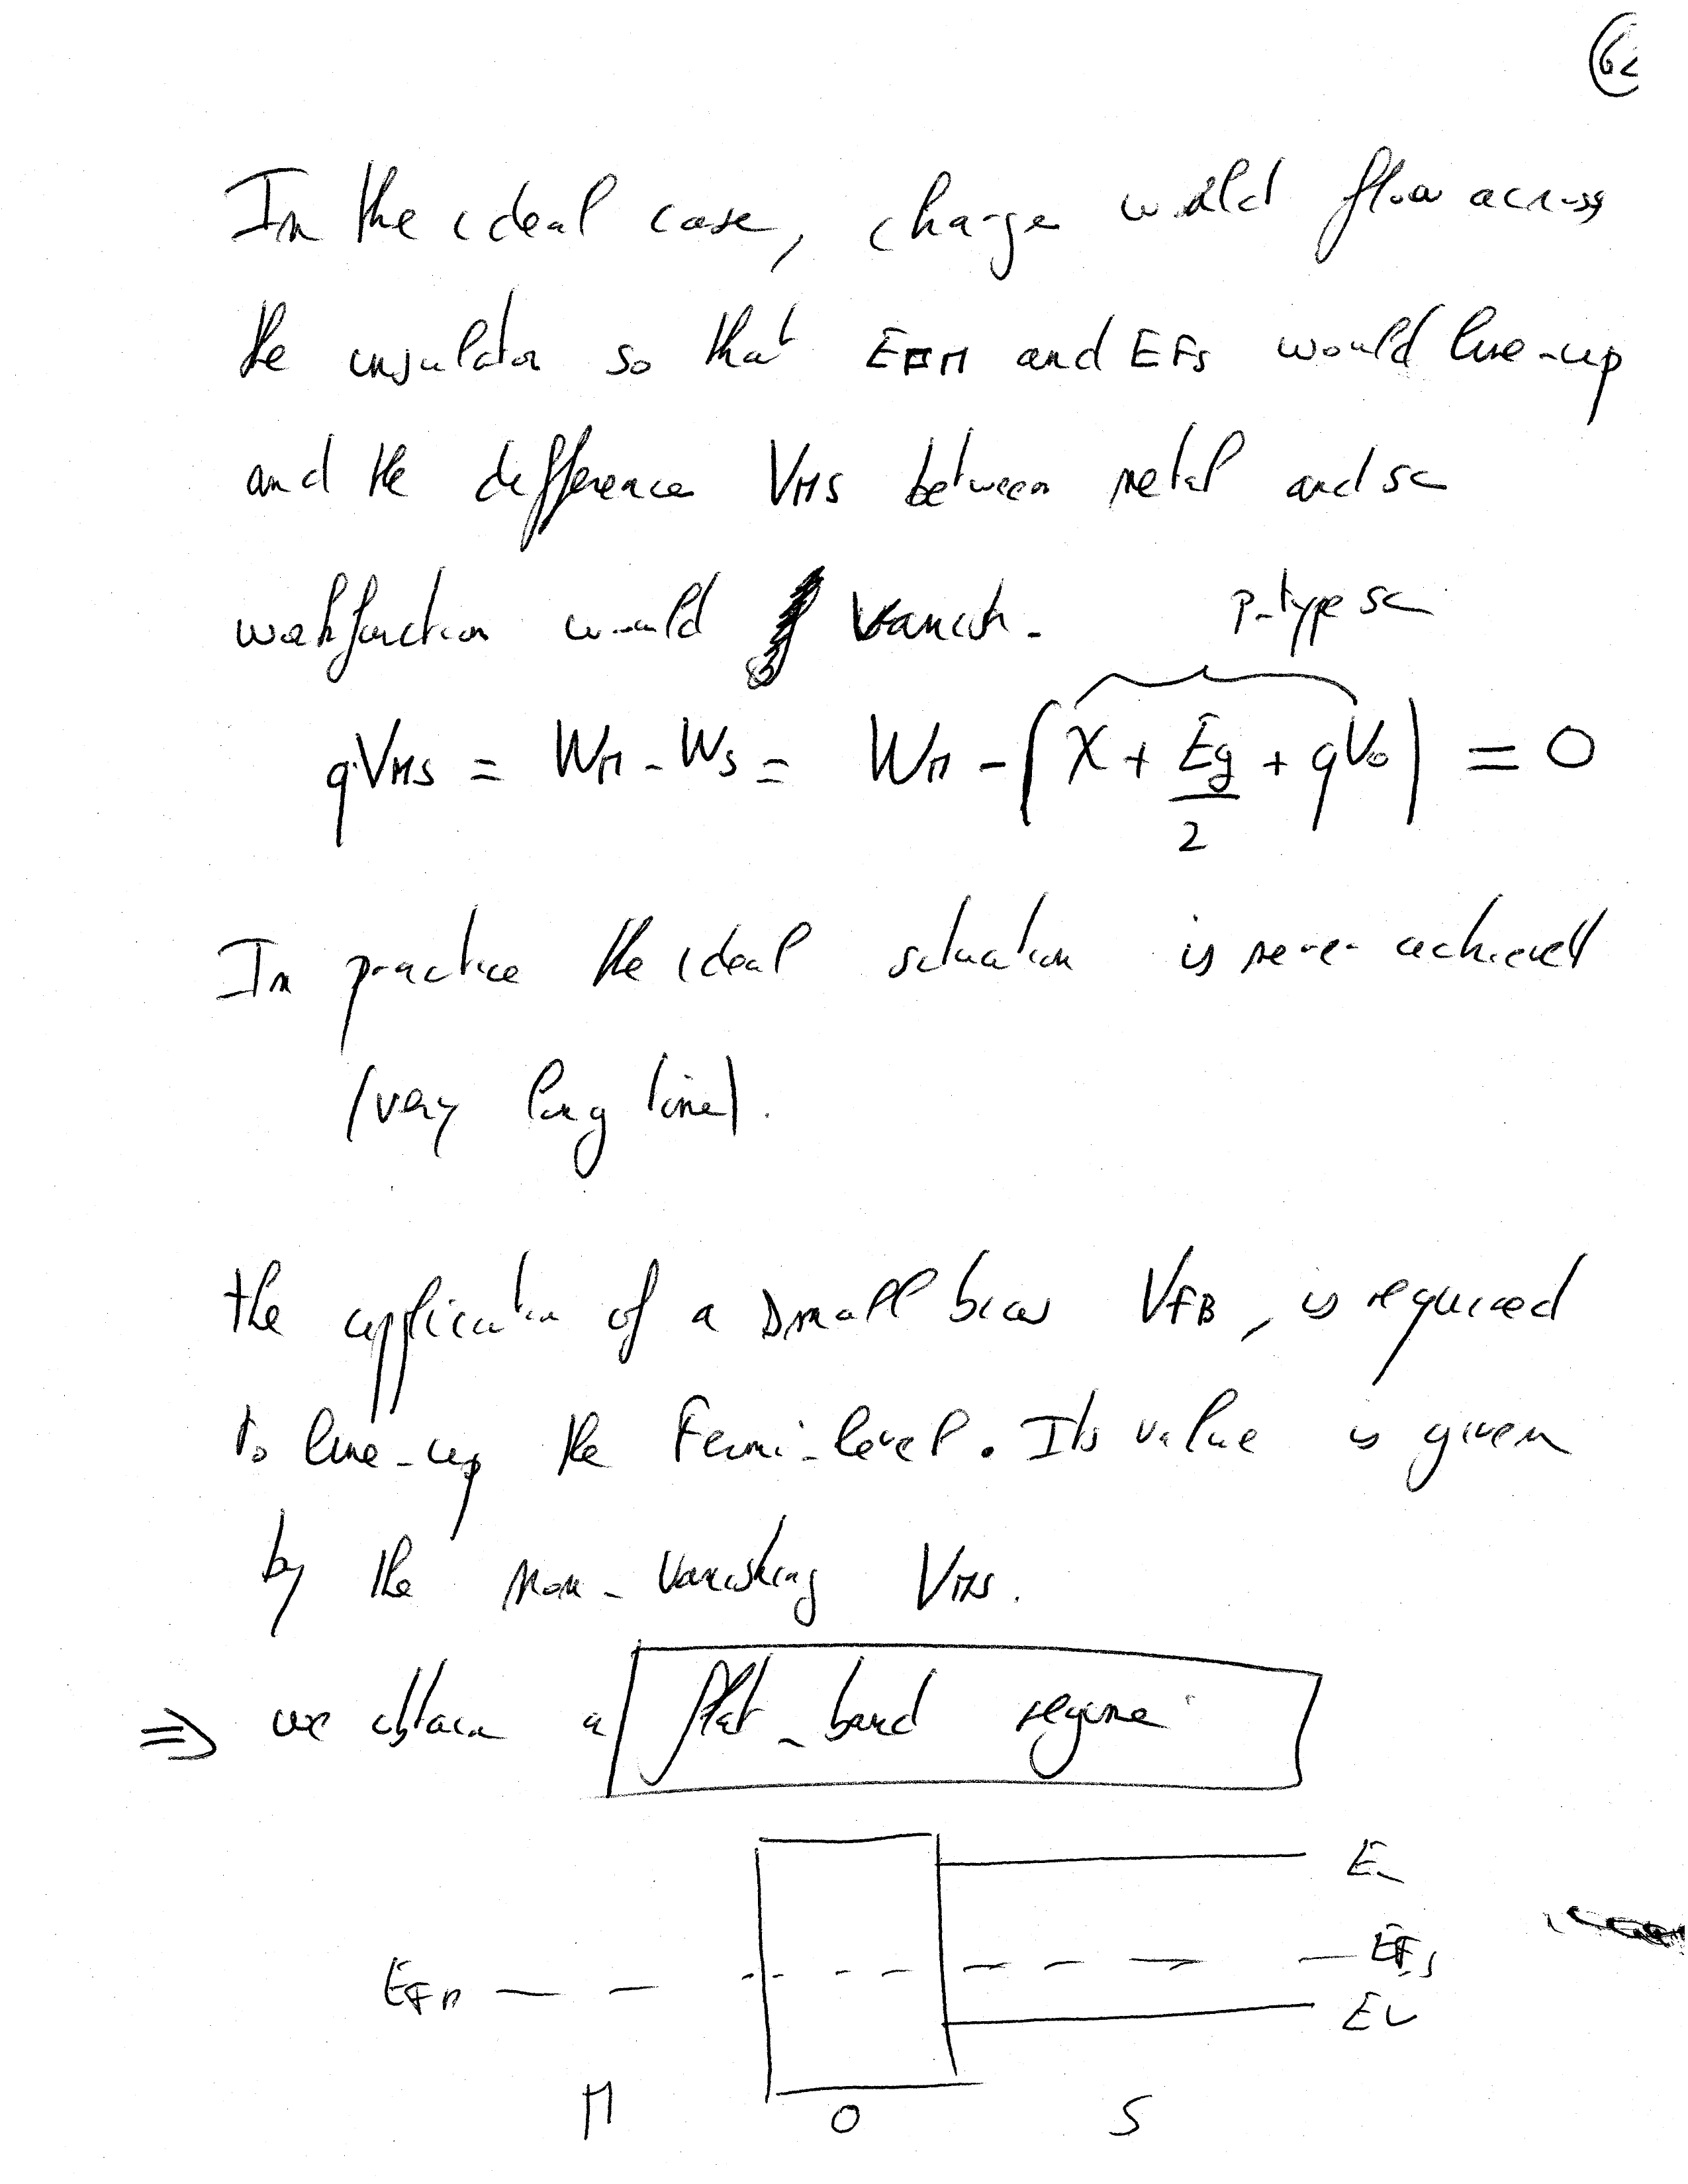 62
In the ideal case, charge would flow across
the insulator so that EFM and EFS would line-up
and the difference VMS between metal and sc
workfunction would vanish.
p-type sc
qVMS = WM - WS = WM - (χ + Eg/2 + qV0) = 0
In practice the ideal situation is never achieved
(very long time).
the application of a small bias VFB, is required
to line-up the Fermi-level. Its value is given
by the non-vanishing VMS.
⇒ we obtain a flat-band regime
Ec
EFM
EFS
EV
M O S